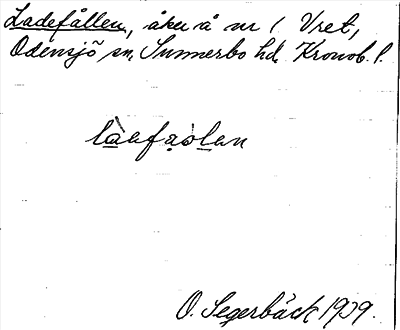 Ladefållen, åker å nr 1 Vret,
Odensjö sn, Sunnerbo hd. Kronob. l.
O. Segerbäck 1939.